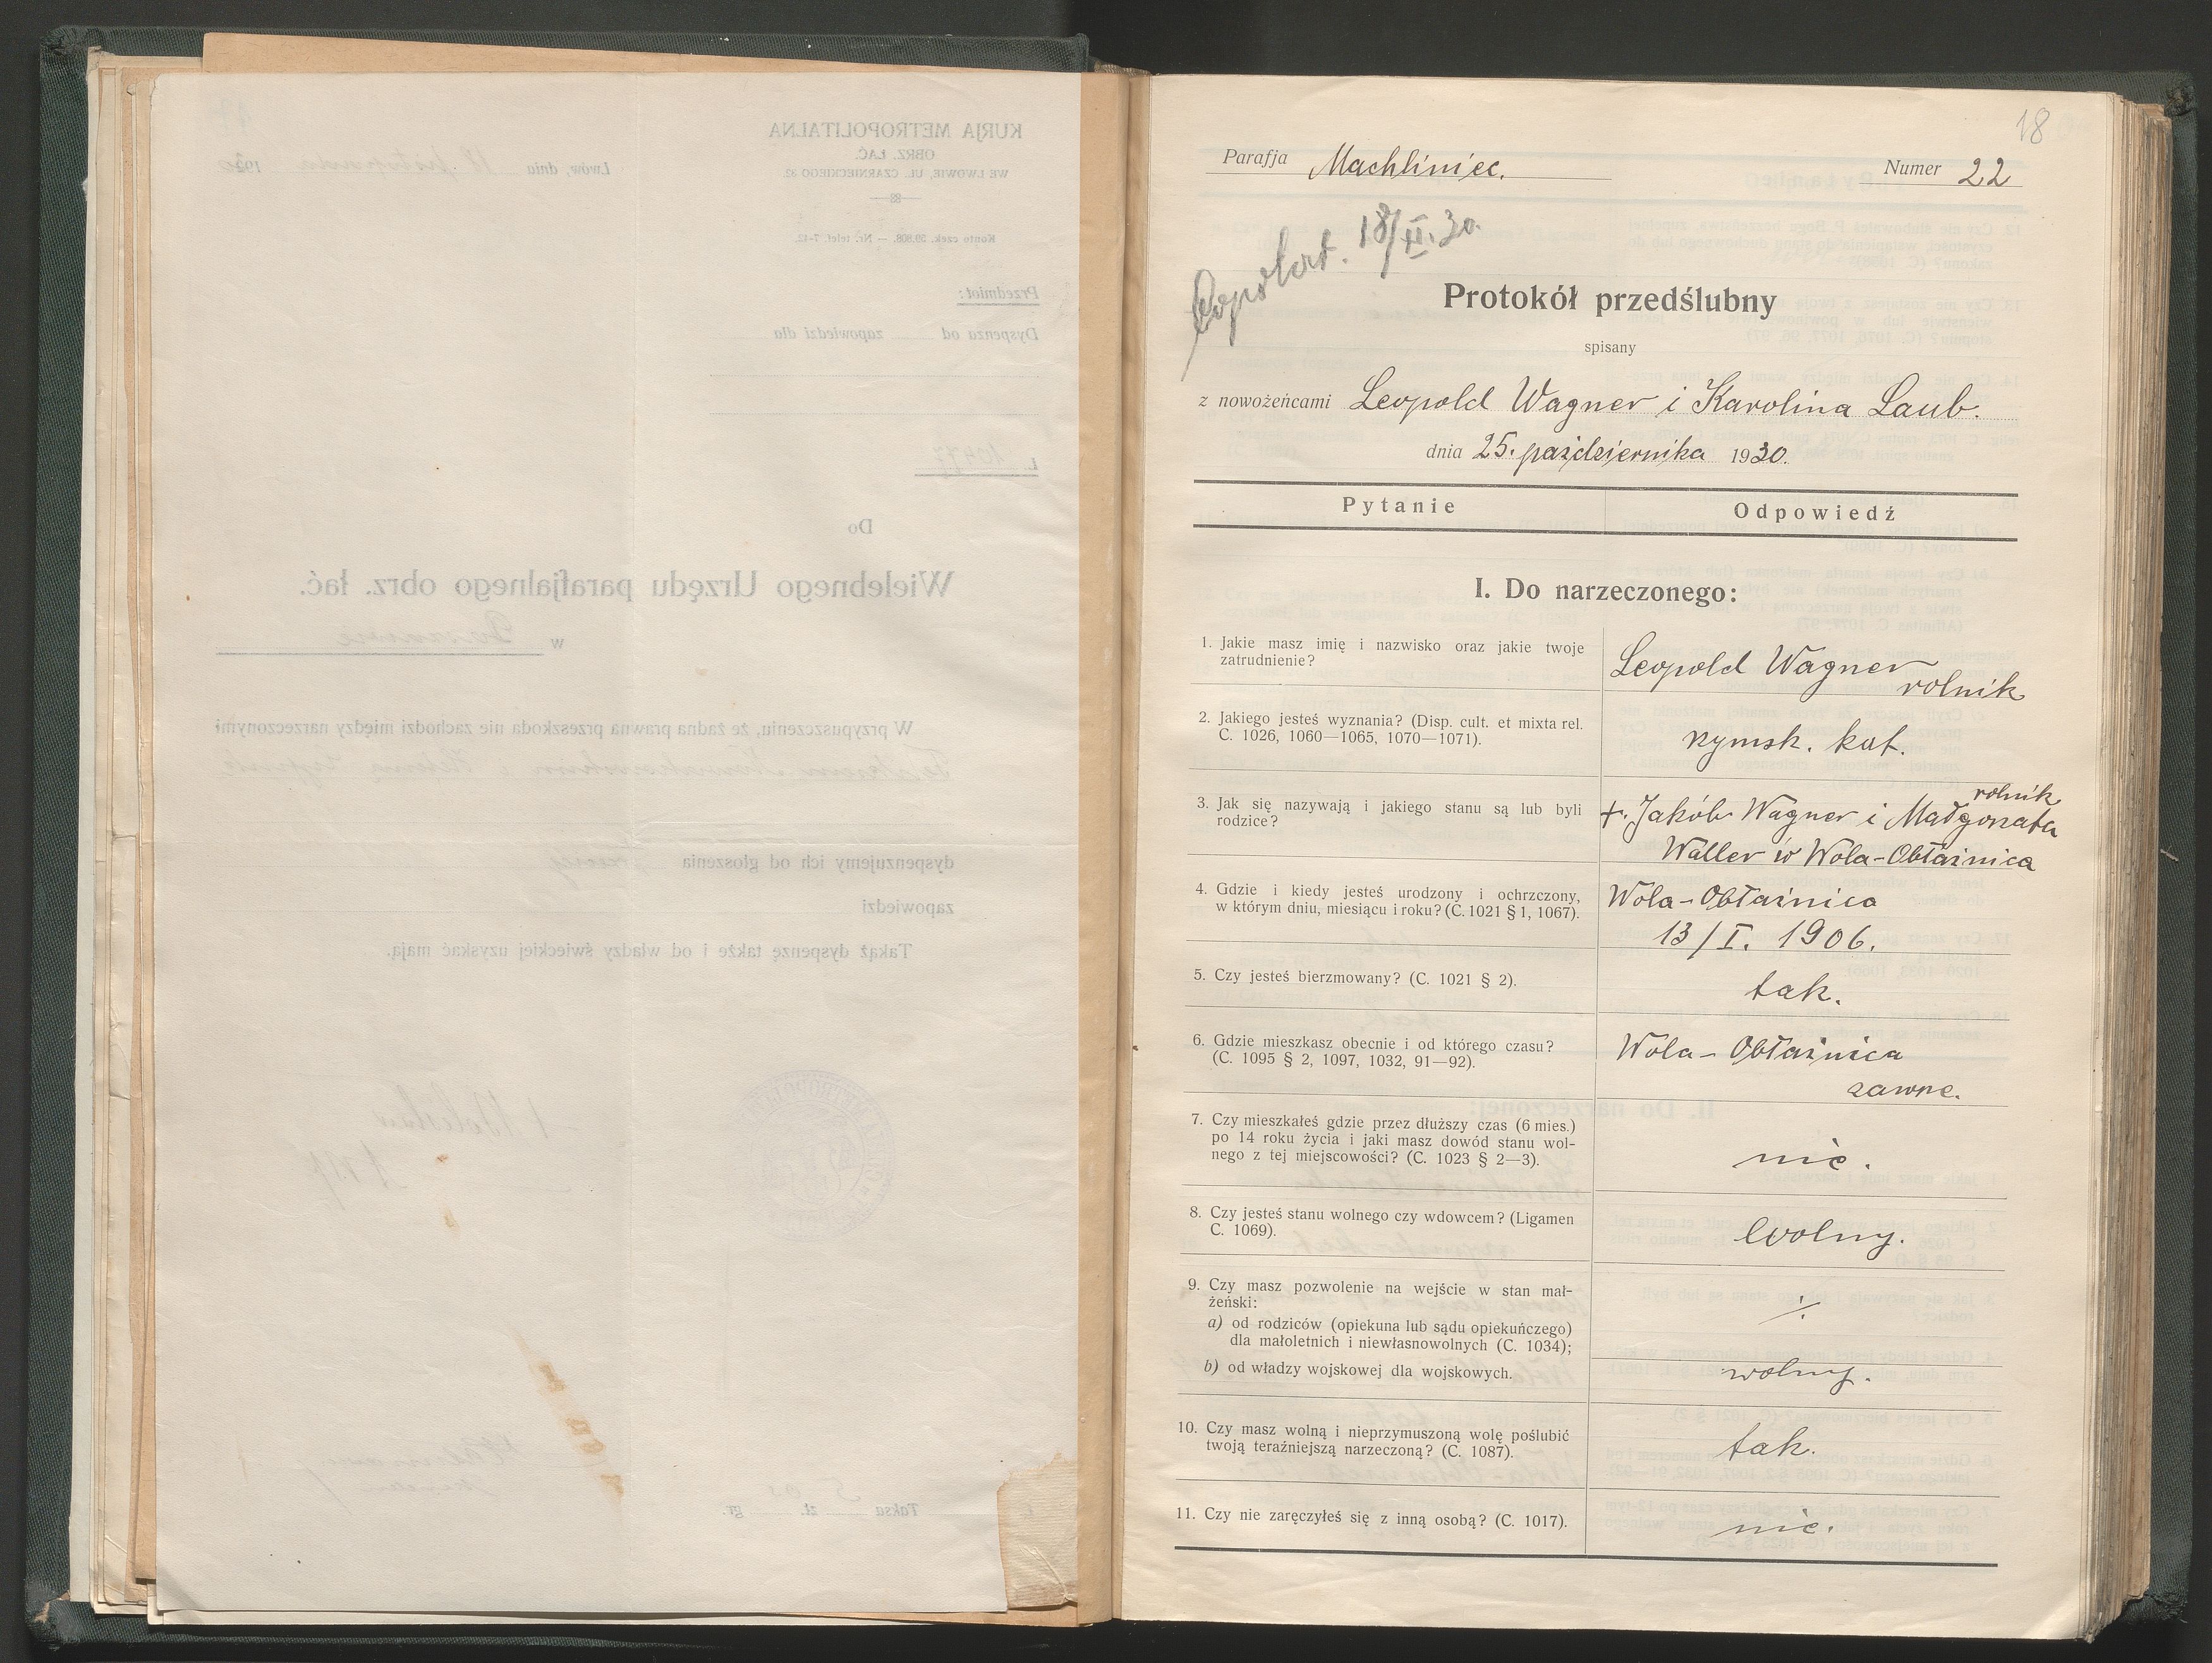 KURJA METROPOLITALNA
OBRZ. ŁAĆ.
WE LWOWIE, UL. CZARNIECKIEGO 32
Lwów, dniu 192
Konto czek. 39.808. — Nr. telef. 7-42.
Przedmiot:
Dyspenza od zapowiedzi dla
L.
Do
Wielebnego Urzędu parafjalnego obrz. łać.
w
W przypuszczeniu, że żadna prawna przeszkoda nie zachodzi między narzeczonymi
dyspenzujemy ich od głoszenia
zapowiedzi
Takąż dyspenzę także i od władzy świeckiej uzyskać mają.
Taksa 5 zł. gr.
18
Parafja Machliniec. Numer 22
18/XI. 30.
Protokół przedślubny
spisany
z nowożeńcami Leopold Wagner i Karolina Laub.
dnia 25. października 1930.
Pytanie Odpowiedź
I. Do narzeczonego:
1. Jakie masz imię i nazwisko oraz jakie twoje
zatrudnienie?
Leopold Wagner
rolnik
2. Jakiego jesteś wyznania? (Disp. cult. et mixta rel.
C. 1026, 1060—1065, 1070—1071).
rzymsk. kat.
3. Jak się nazywają i jakiego stanu są lub byli
rodzice?
rolnik
+. Jakób Wagner i Małgorzata
Waller w Wola-Obłaźnica
4. Gdzie i kiedy jesteś urodzony i ochrzczony,
w którym dniu, miesiącu i roku? (C. 1021 § 1, 1067).
Wola-Obłaźnica
13/I. 1906.
5. Czy jesteś bierzmowany? (C. 1021 § 2).
tak.
6. Gdzie mieszkasz obecnie i od którego czasu?
(C. 1095 § 2, 1097, 1032, 91—92).
Wola-Obłaźnica
zawsze.
7. Czy mieszkałeś gdzie przez dłuższy czas (6 mies.)
po 14 roku życia i jaki masz dowód stanu wol-
nego z tej miejscowości? (C. 1023 § 2—3).
nie.
8. Czy jesteś stanu wolnego czy wdowcem? (Ligamen
C. 1069).
Wolny.
9. Czy masz pozwolenie na wejście w stan mał-
żeński:
a) od rodziców (opiekuna lub sądu opiekuńczego)
dla małoletnich i niewłasnowolnych (C. 1034);
b) od władzy wojskowej dla wojskowych.
wolny.
10. Czy masz wolną i nieprzymuszoną wolę poślubić
twoją teraźniejszą narzeczoną? (C. 1087).
tak.
11. Czy nie zaręczyłeś się z inną osobą? (C. 1017).
nie.